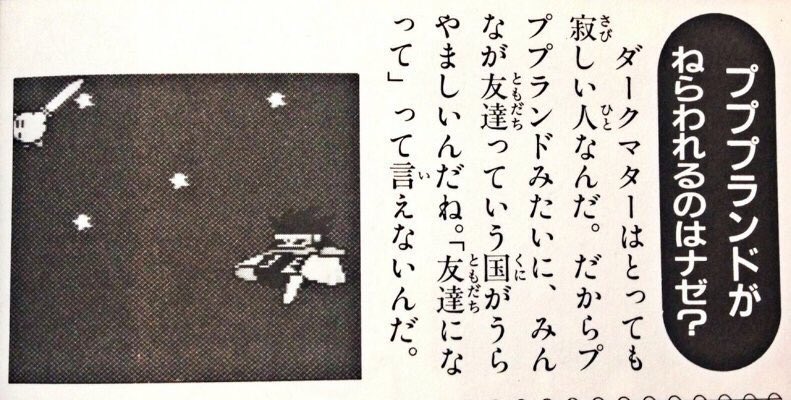 プププランドが
ねらわれるのはナゼ?
ダークマターはとっても
寂しい人なんだ。だからプ
ププランドみたいに、みん
なが友達っていう国がうら
やましいんだね。「友達にな
って」って言えないんだ。